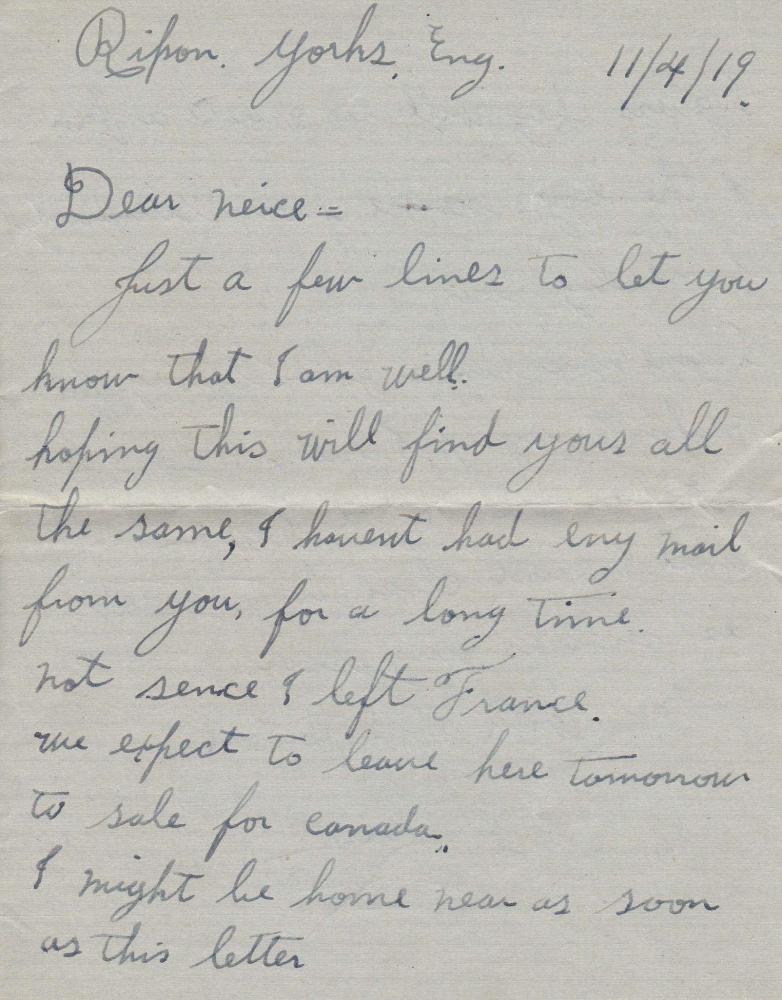 Ripon. Yorks, Eng. 11/4/19.
Dear neice =
Just a few lines to let you
know that I am well.
hoping this will find yous all
the same, I havent had eny mail
from you, for a long time.
not sence I left France.
we expect to leave here tomorrow
to sale for canada.
I might be home near as soon
as this letter